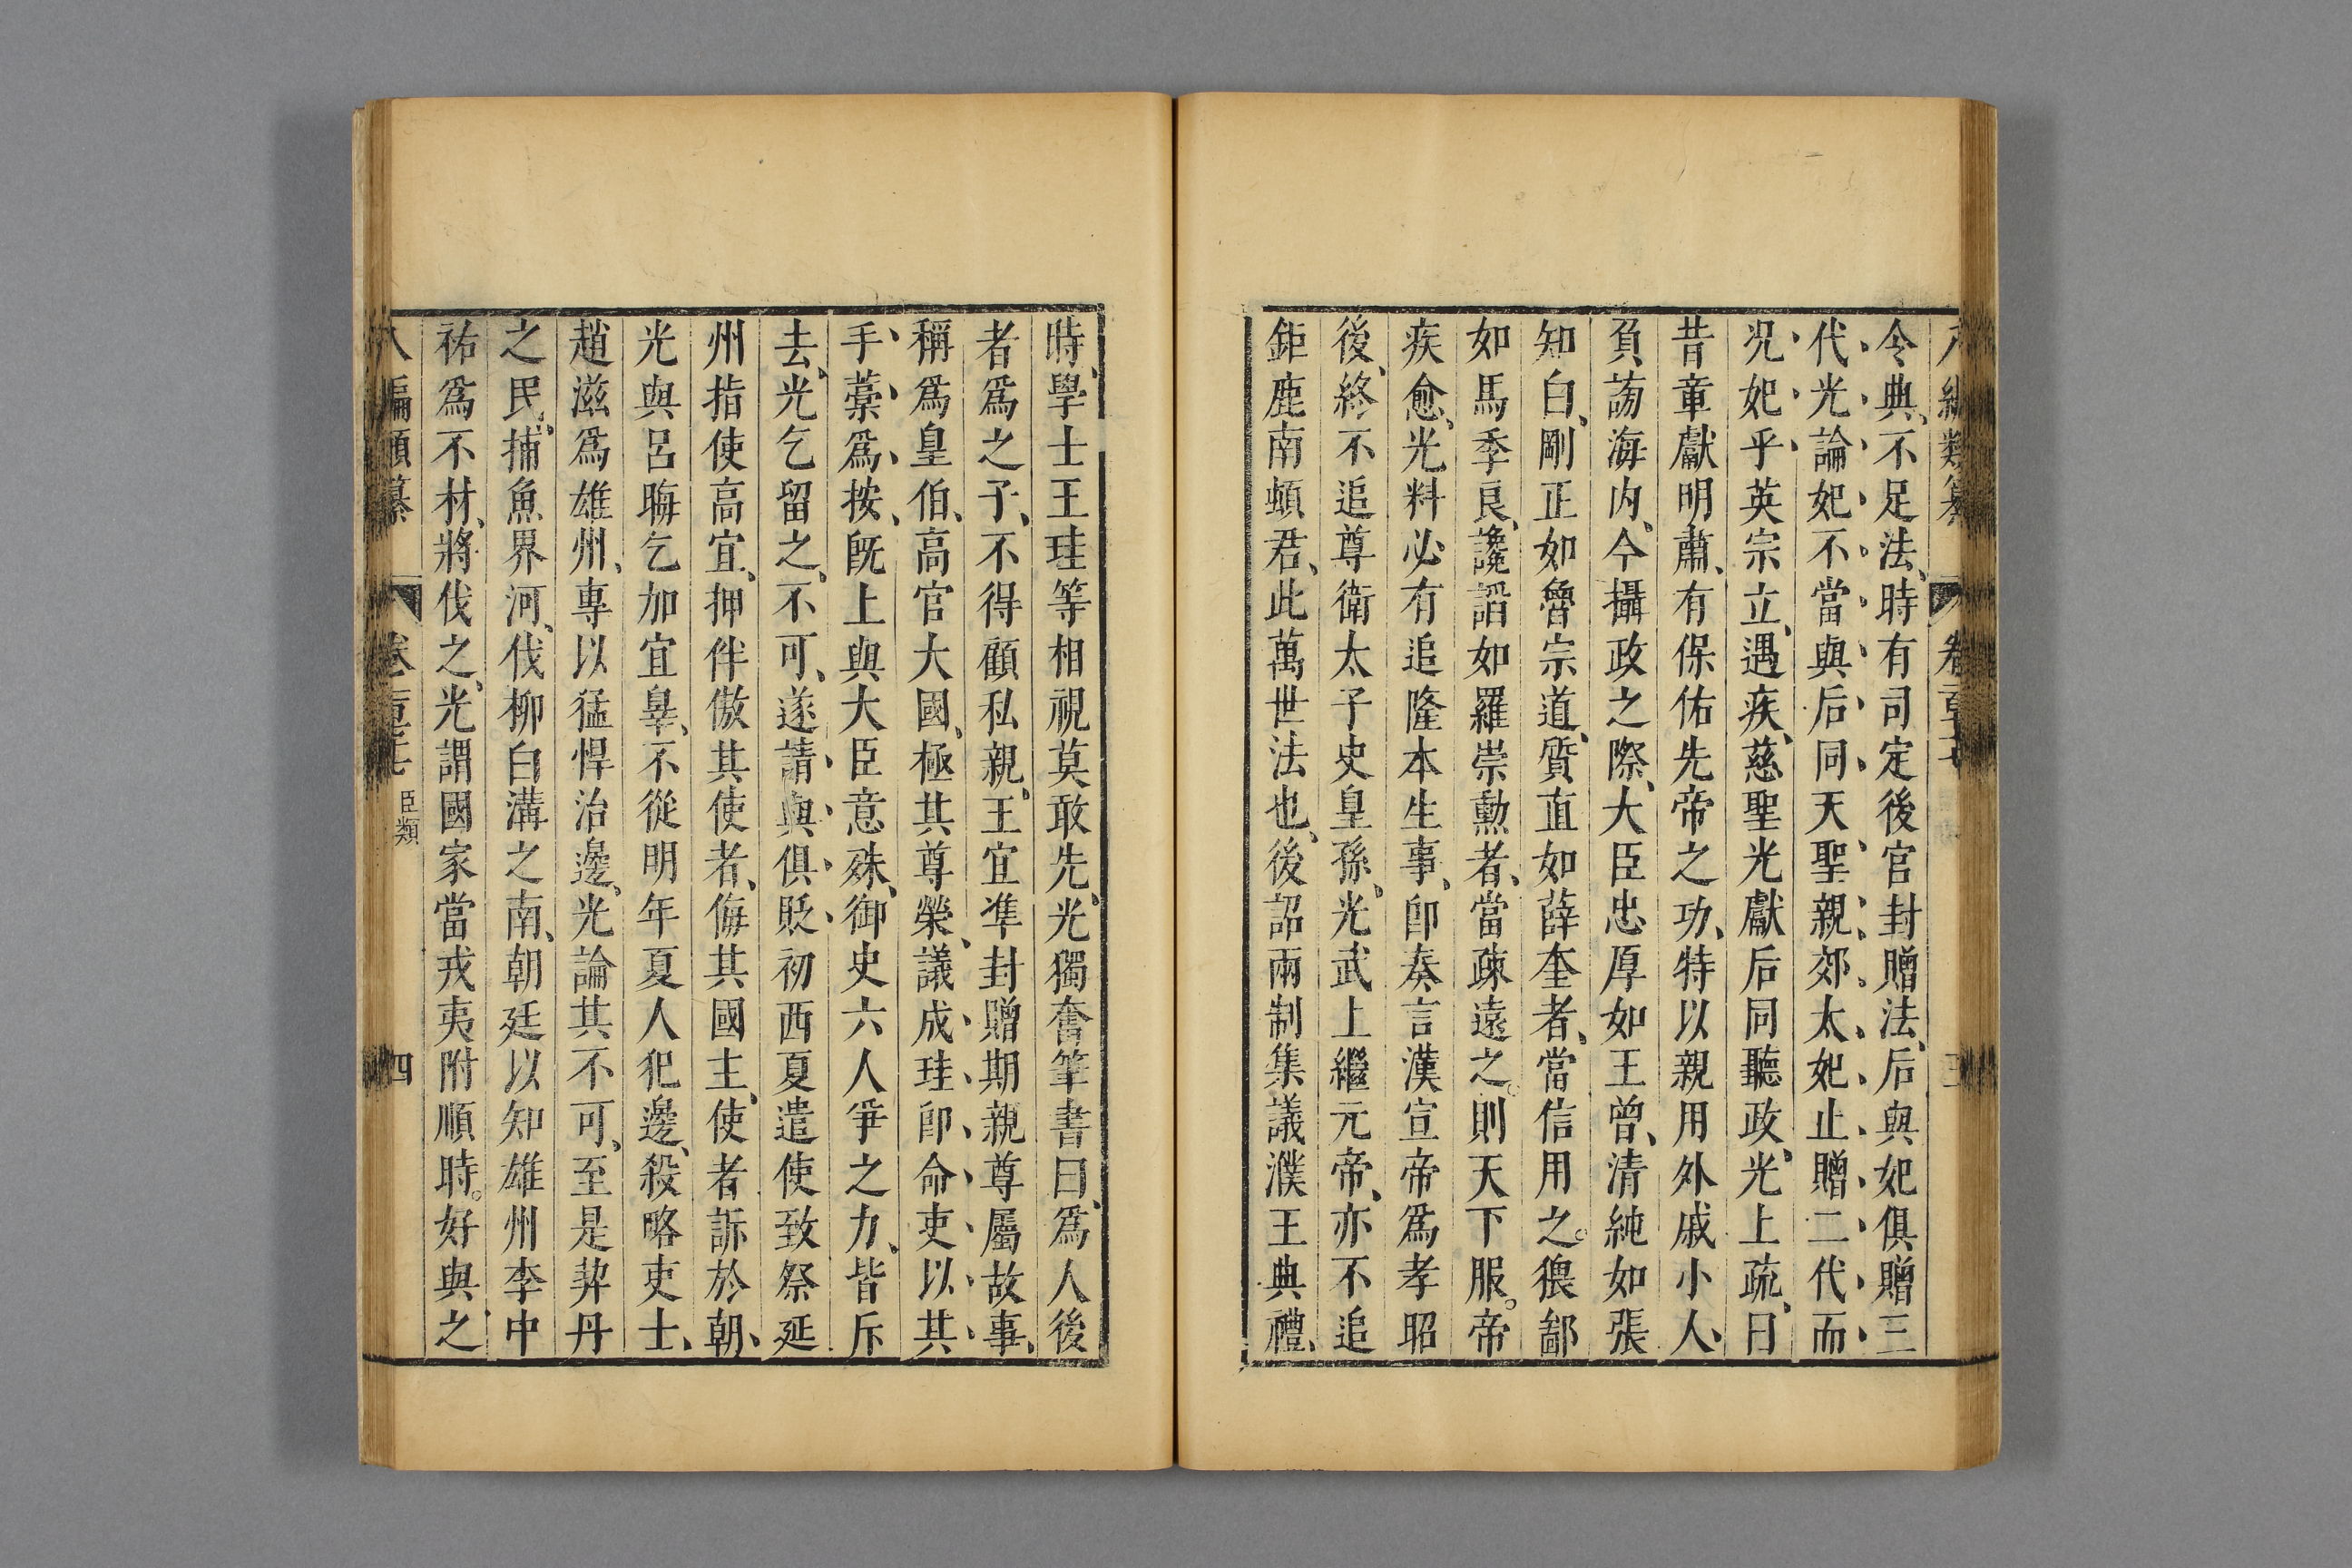 令典、不足法、時有司定後宮封贈法、后與妃俱贈三
代、光論妃不當與后同天聖親郊、太妃止贈二代、而
况妃乎、英宗立、遇疾、慈聖光獻后同聽政、光上疏、曰
昔章獻明肅、有保佑先帝之功、特以親用外戚小人、
負謗海内、今攝政之際、大臣忠厚如王曾、清純如張
知白、剛正如魯宗道、質直如薛奎者、當信用之。猥鄙
如馬季良、讒諂如羅崇勳者、當疎遠之。則天下服。帝
疾愈、光料必有追隆本生事、卽奏言漢宣帝爲孝昭
後、終不追尊衛太子史皇孫、光武上繼元帝、亦不追
鉅鹿南頓君、此萬世法也、後詔兩制集議濮王典禮、
時、學士王珪等相視莫敢先、光獨奮筆書曰、爲人後
者爲之子、不得顧私親、王宜凖封贈期親尊屬故事、
稱爲皇伯、高官大國、極其尊榮、議成、珪卽命吏以其
手藁爲按、旣上與大臣意殊、御史六人爭之力、皆斥
去、光乞留之、不可、遂請與俱貶、初西夏遣使致祭延
州指使高宜、押伴傲其使者、侮其國主、使者訴於朝、
光與呂晦乞加宜辠、不從明年夏人犯邊、殺略吏士、
趙滋爲雄州、專以猛悍治邊、光論其不可、至是契丹
之民、捕魚界河、伐柳白溝之南、朝廷以知雄州李中
祐爲不材、將伐之、光謂國家當戎夷附順時。好與之
卷 臣類 四